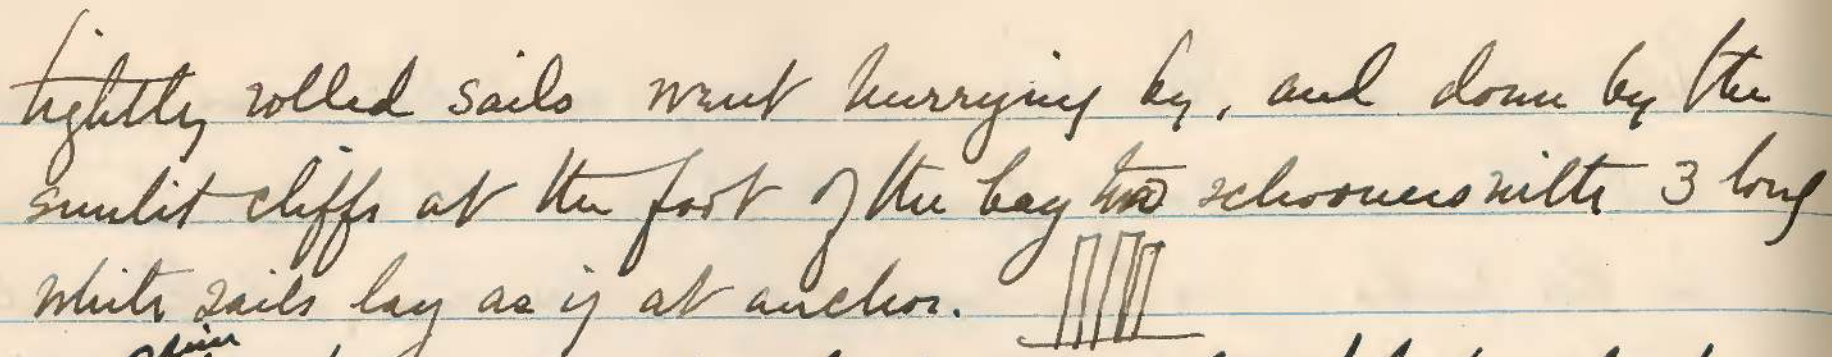 tightly rolled sails went hurrying by, and down by the
sunlit cliffs at the foot of the bay two schooners with 3 long
white sails lay as if at anchor.